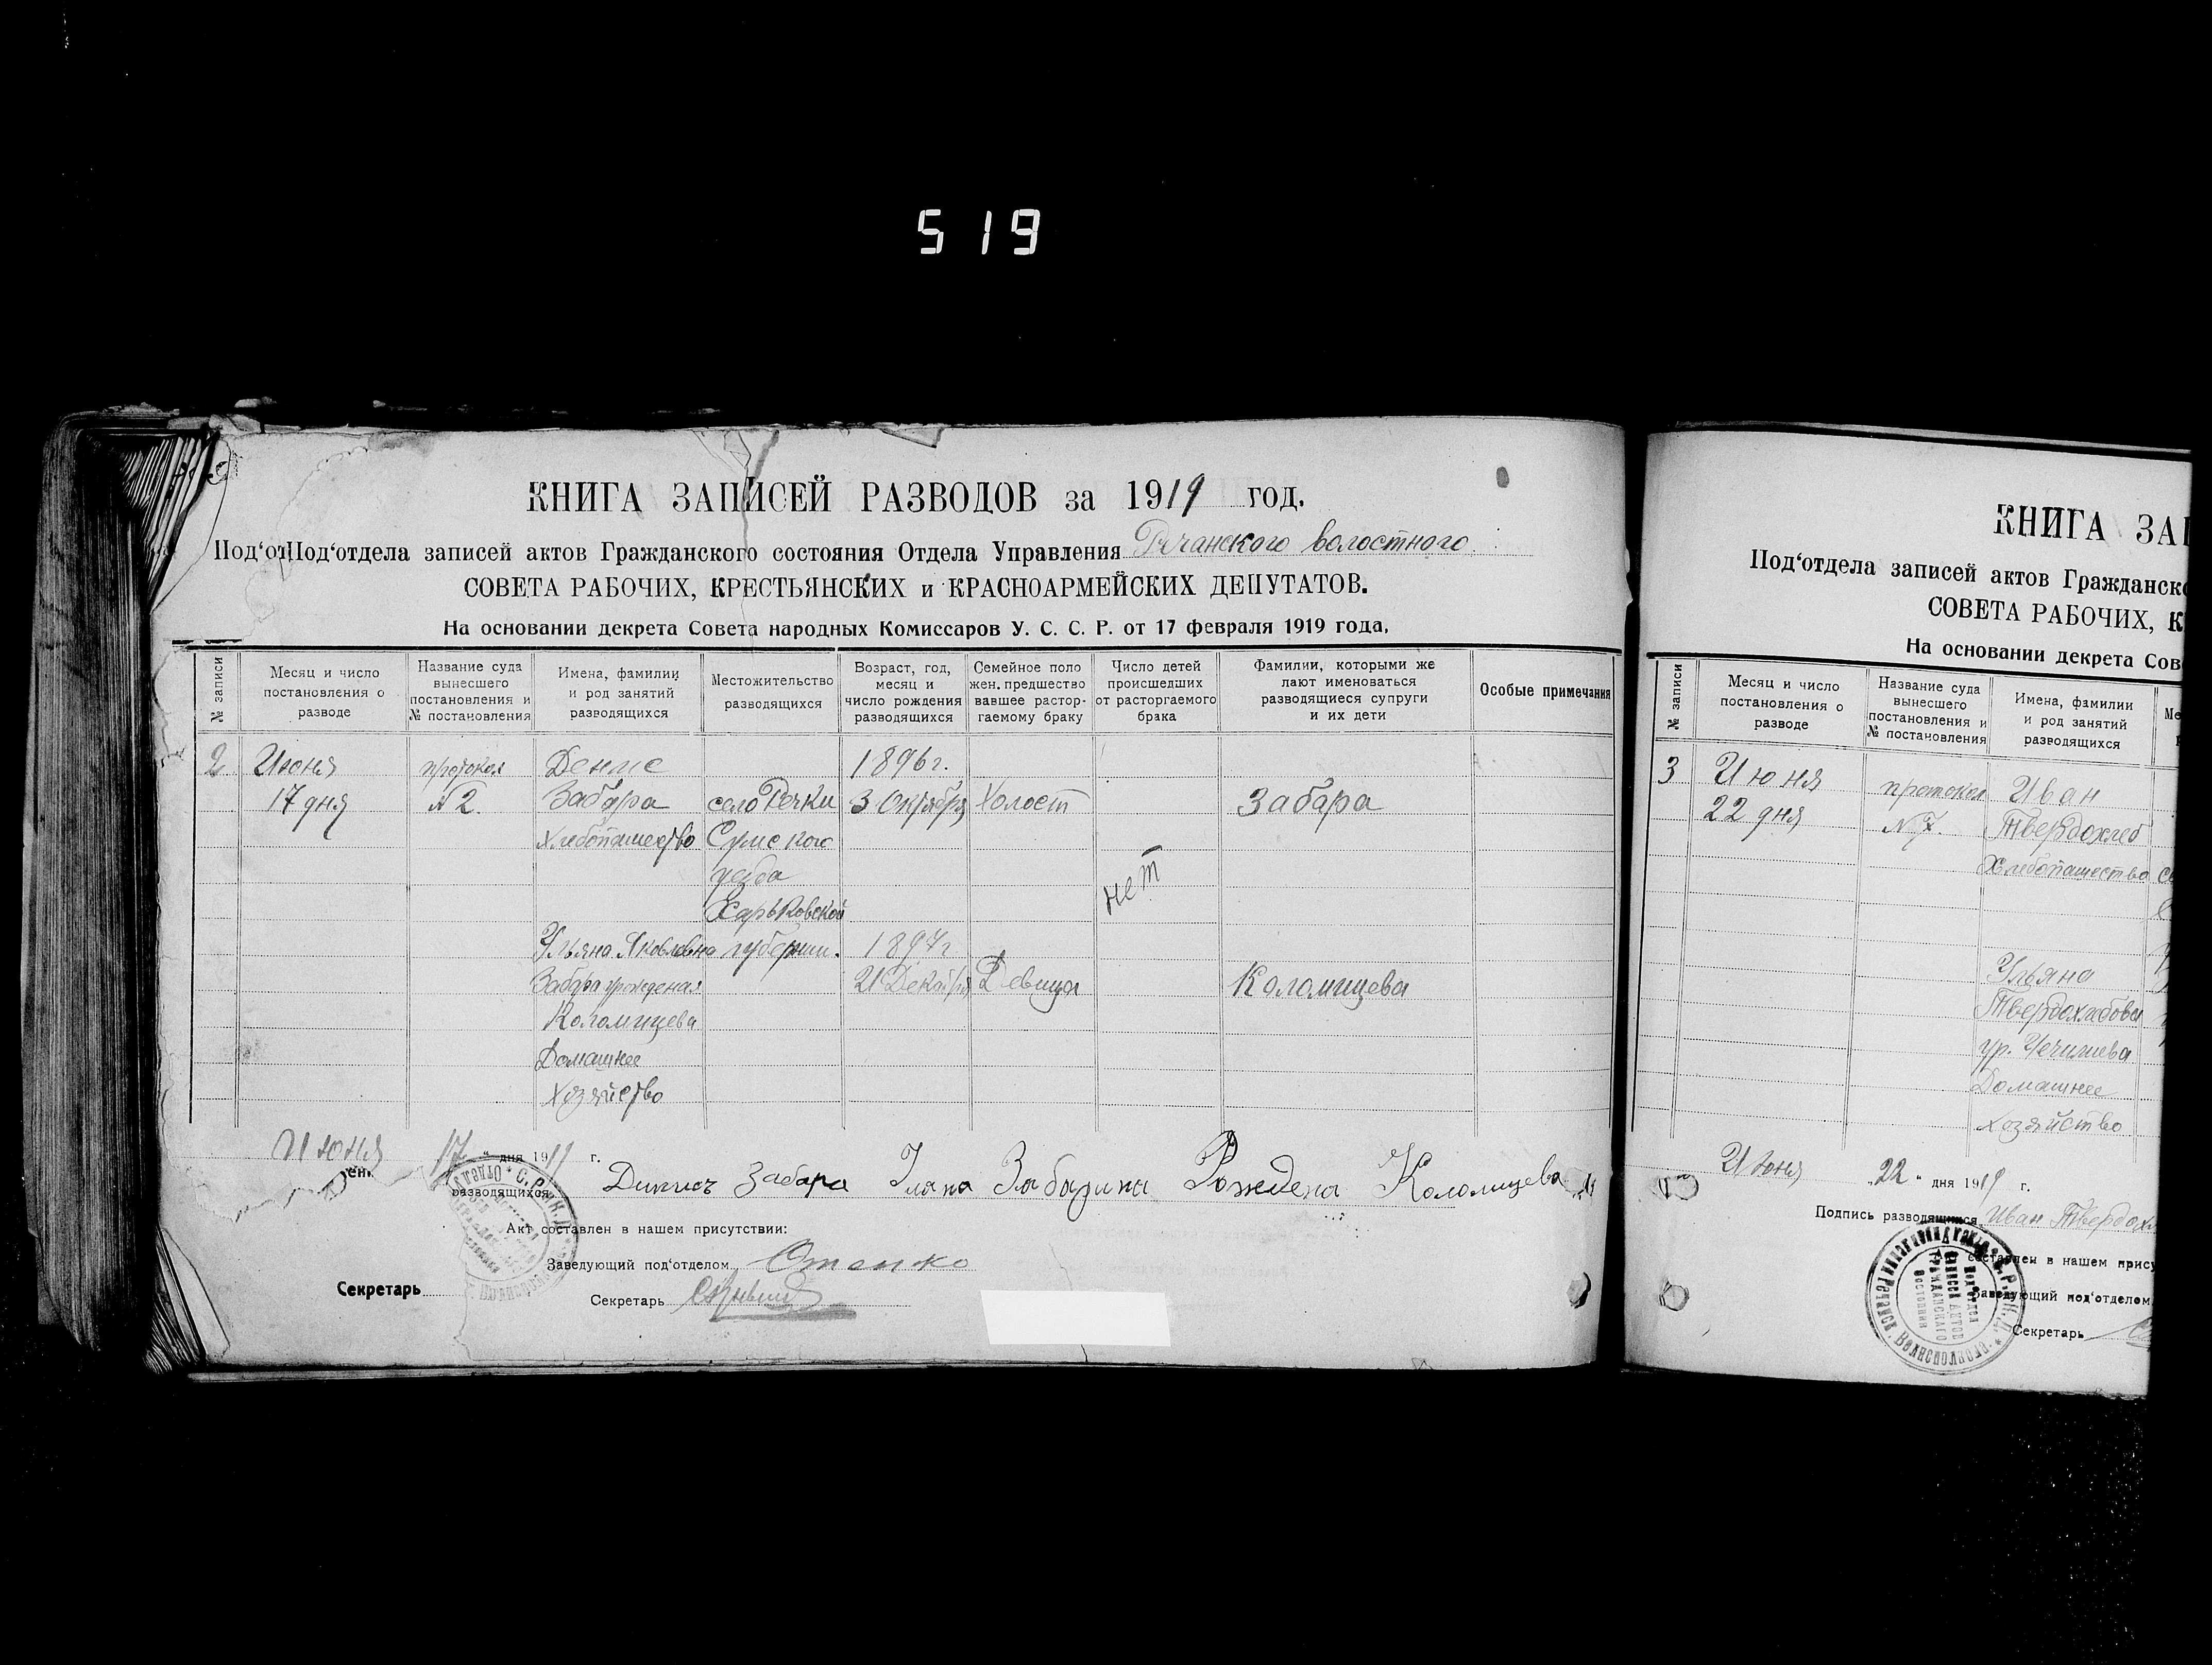 519
КНИГА ЗАПИСЕЙ РАЗВОДОВ за 1919 год.
Под‘от Под‘отдела записей актов Гражданского состояния Отдела Управления Речанского волостного
СОВЕТА РАБОЧИХ, КРЕСТЬЯНСКИХ и КРАСНОАРМЕЙСКИХ ДЕПУТАТОВ.
На основании декрета Совета народных Комиссаров У. С. С. Р. от 17 февраля 1919 года,
№ записи
Месяц и число
постановления о
разводе
Название суда
вынесшего
постановления и
№ постановления
Имена, фамилии
и род занятий
разводящихся
Местожительство
разводящихся
Возраст, год,
месяц и
число рождения
разводящихся
Семейное поло
жен. предшество
вавшее растор-
гаемому браку
Число детей
происшедших
от расторгаемого
брака
Фамилии, которыми же
лают именоваться
разводящиеся супруги
и их дети
Особые примечания
2 Июня протокол Денис 1896 г.
17 дня № 2. Забара село Речки 3 Октября Холост Забара
Хлебопашество Сумского
уезда
нет
Харьковской
Ульяна Яковлевна губернии. 1897 г
Забара урожденая 21 Декабря Девица Коломицева
Коломицева
Домашнее
Хозяйство
Июня 17 " дня 1919 г.
разводящихся Динисъ Забара Уляна Забарина Рождена Коломицева
Акт составлен в нашем присутствии:
Заведующий под‘отделом Отенко
Секретарь
Секретарь
КНИГА ЗАП
Под‘отдела записей актов Гражданско
СОВЕТА РАБОЧИХ, К
На основании декрета Сов
№ записи
Месяц и число
постановления о
разводе
Название суда
вынесшего
постановления и
№ постановления
Имена, фамилии
и род занятий
разводящихся
Ме
3 Июня протокол Иван
22 дня № 7. Твердохлеб
Хлебопашество
Ульяна
Твердохлебова
ур. Чечилева
Домашнее
хозяйство
Июня „22 " дня 1919 г.
Подпись разводящихся Иван Твердохл
составлен в нашем прису
Заведующий под‘отделом
Секретарь